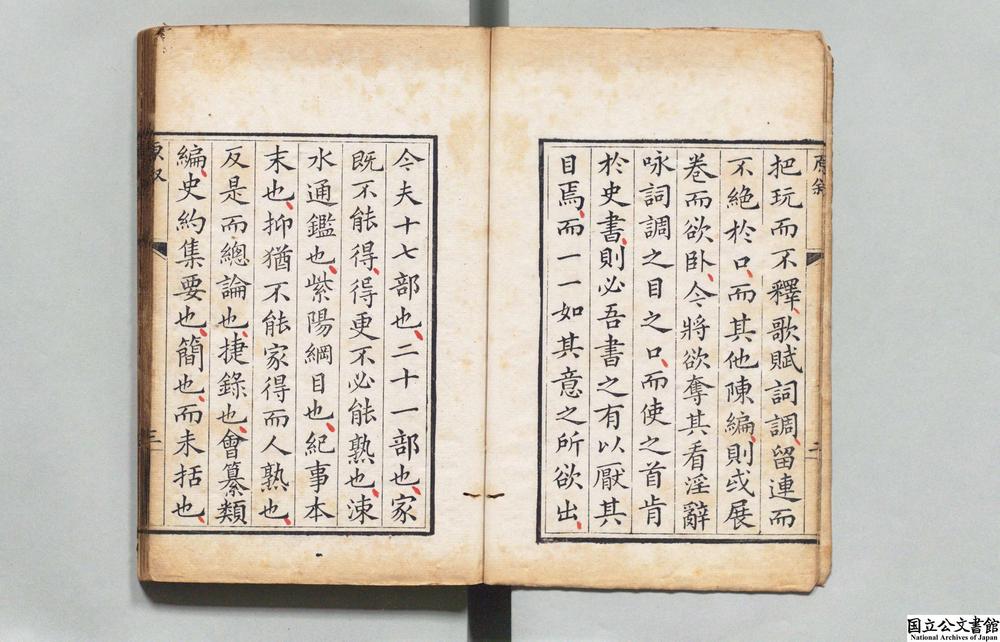 把玩而不釋歌賦詞調留連而
不絕於口而其他陳編則或展
卷而欲卧今將欲奪其看淫辭
咏詞調之目之口而使之首肯
於史書則必吾書之有以厭其
目焉而一一如其意之所欲出
今夫十七部也二十一部也家
既不能得得更不必能熟也涑
水通鑑也紫陽綱目也紀事本
末也抑猶不能家得而人熟也
反是而總論也捷錄也會纂類
編史約集要也簡也而未括也
三
国立公文書館
National Archives of Japan